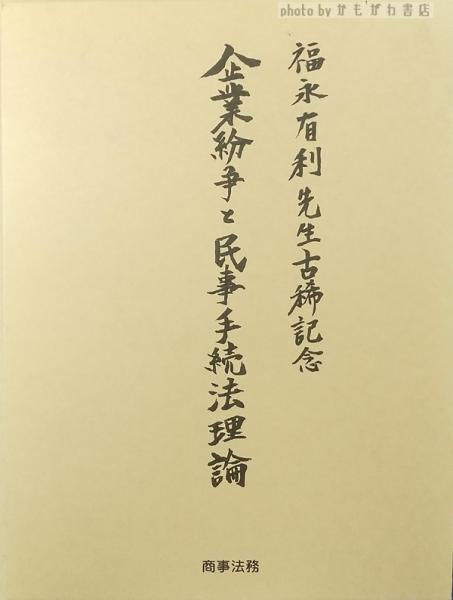 photo by かもがわ書店
福永有利先生古稀記念
企業紛争と民事手続法理論
商事法務